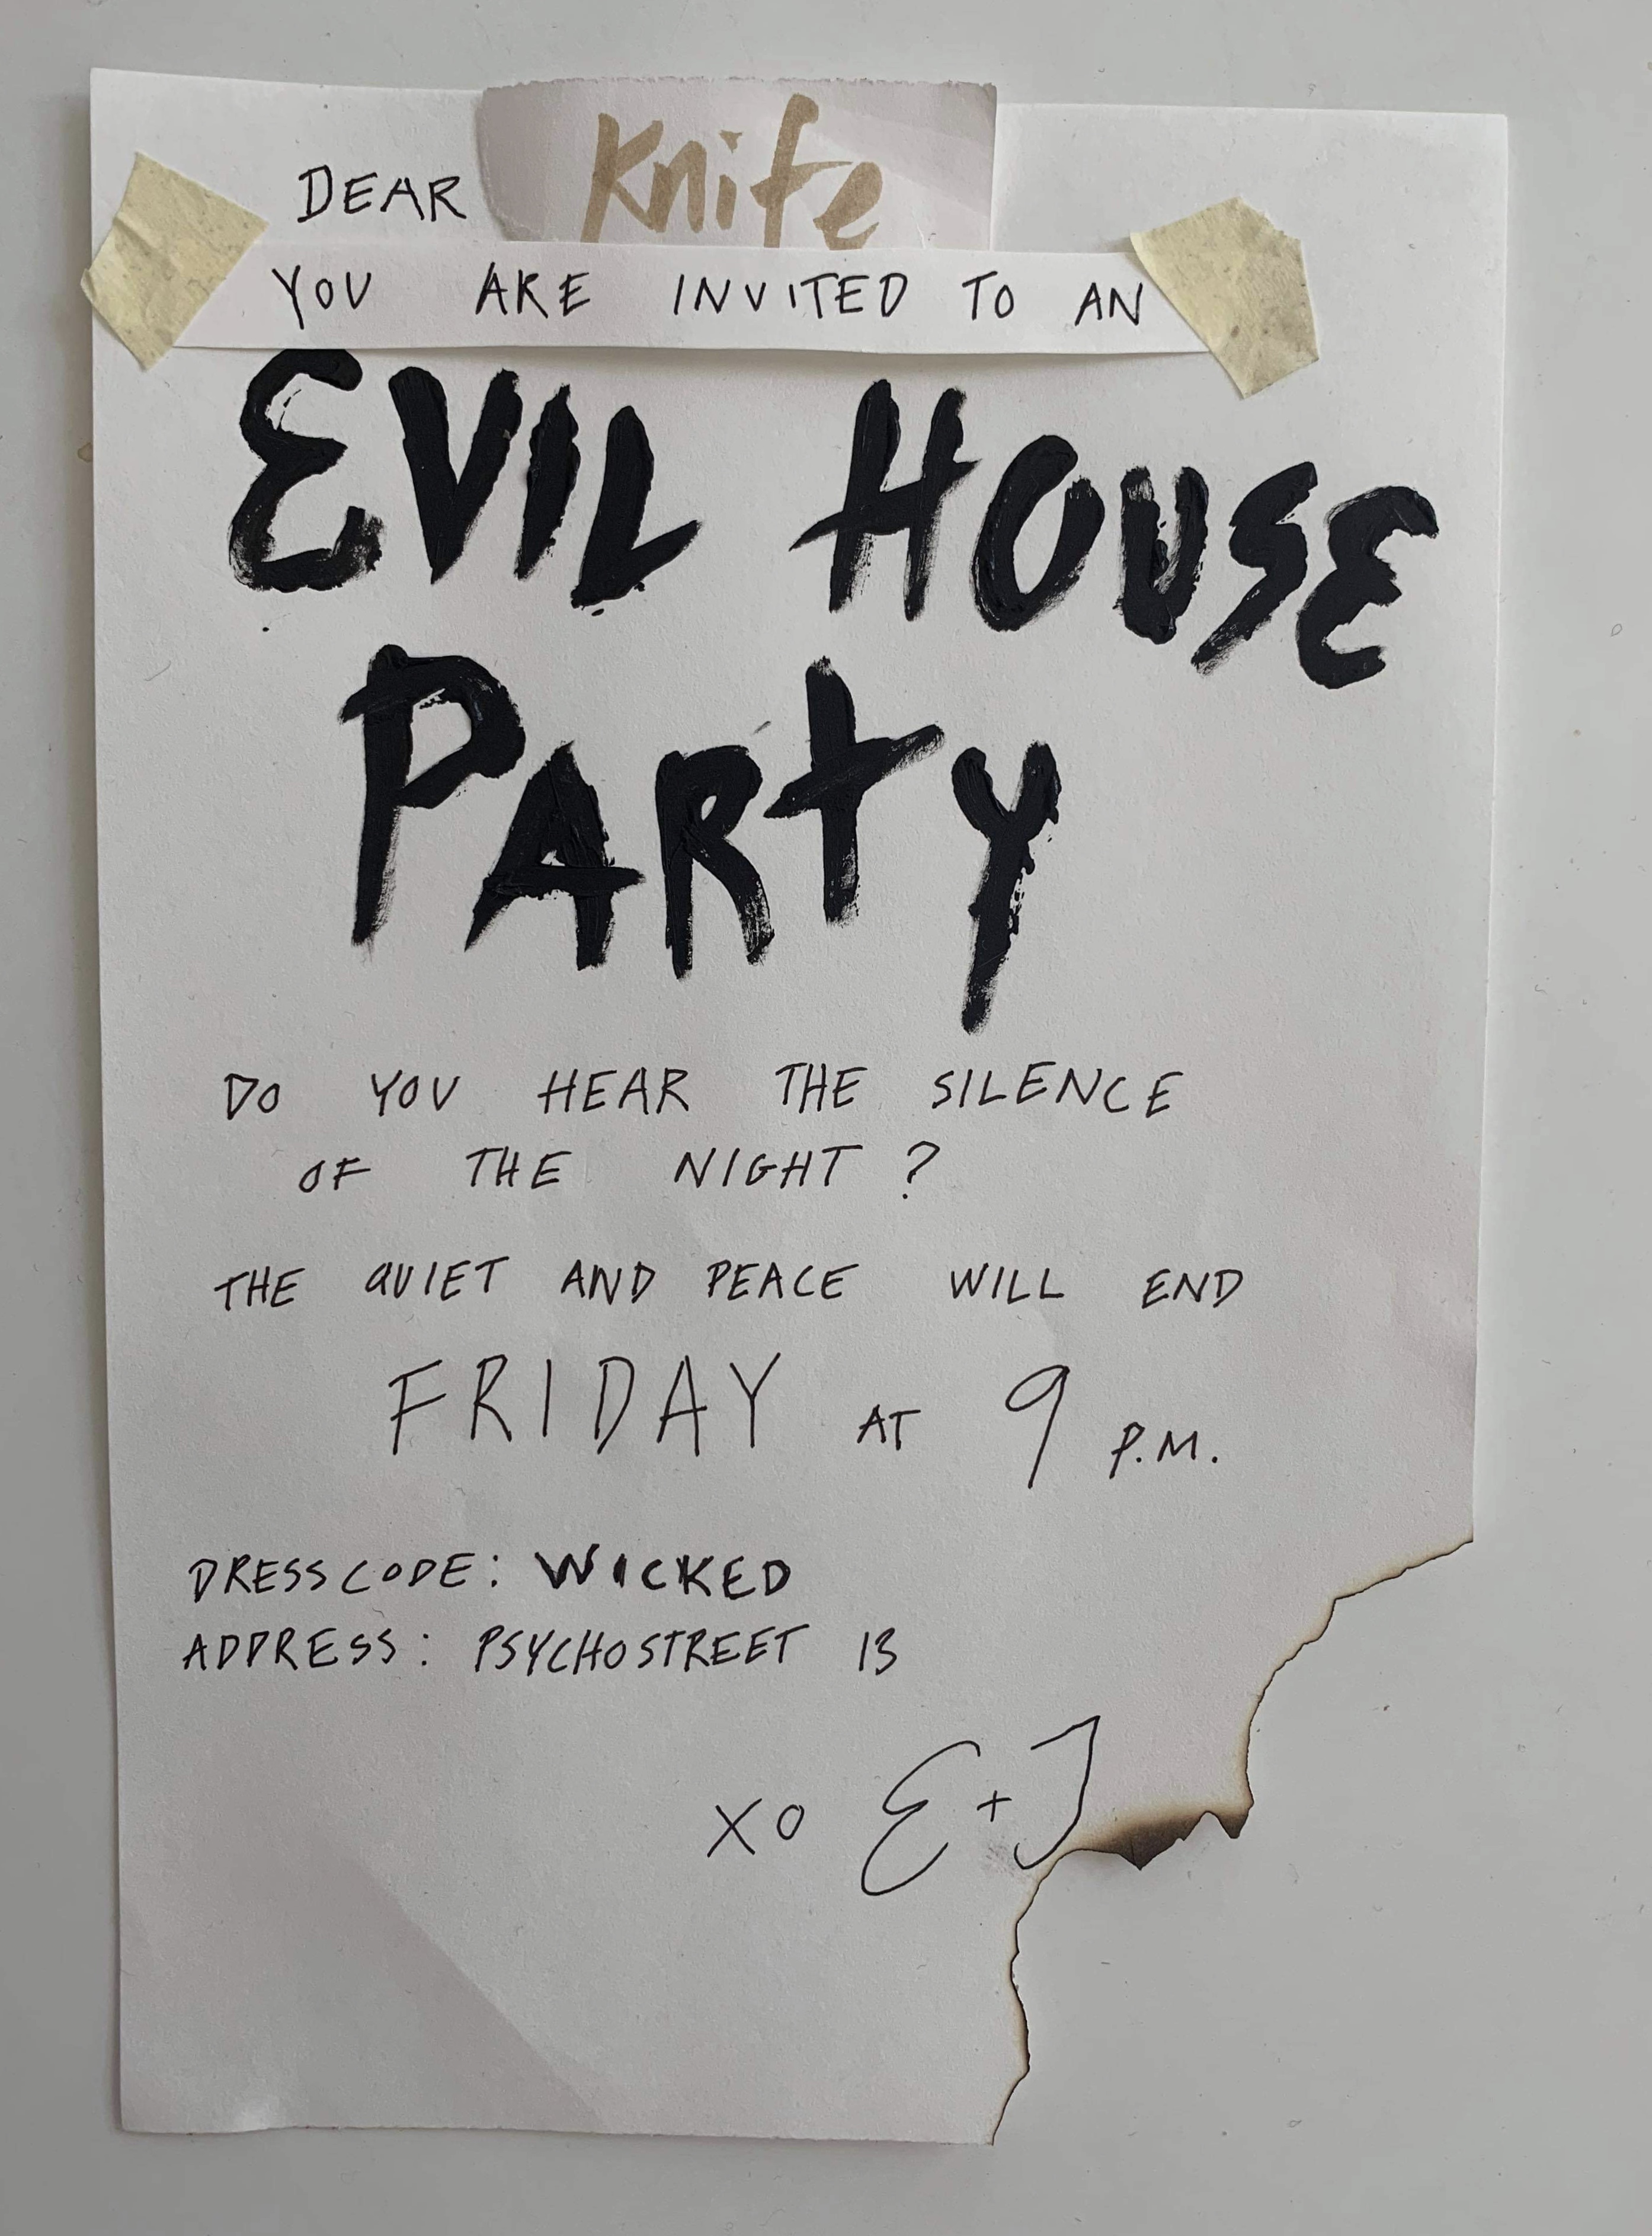 DEAR Knife
YOU ARE INVITED TO AN
EVIL HOUSE
PARTY
DO YOU HEAR THE SILENCE
OF THE NIGHT ?
THE QUIET AND PEACE WILL END
FRIDAY AT 9 P.M.
DRESSCODE: WICKED
ADDRESS: PSYCHOSTREET 13
XO E+J